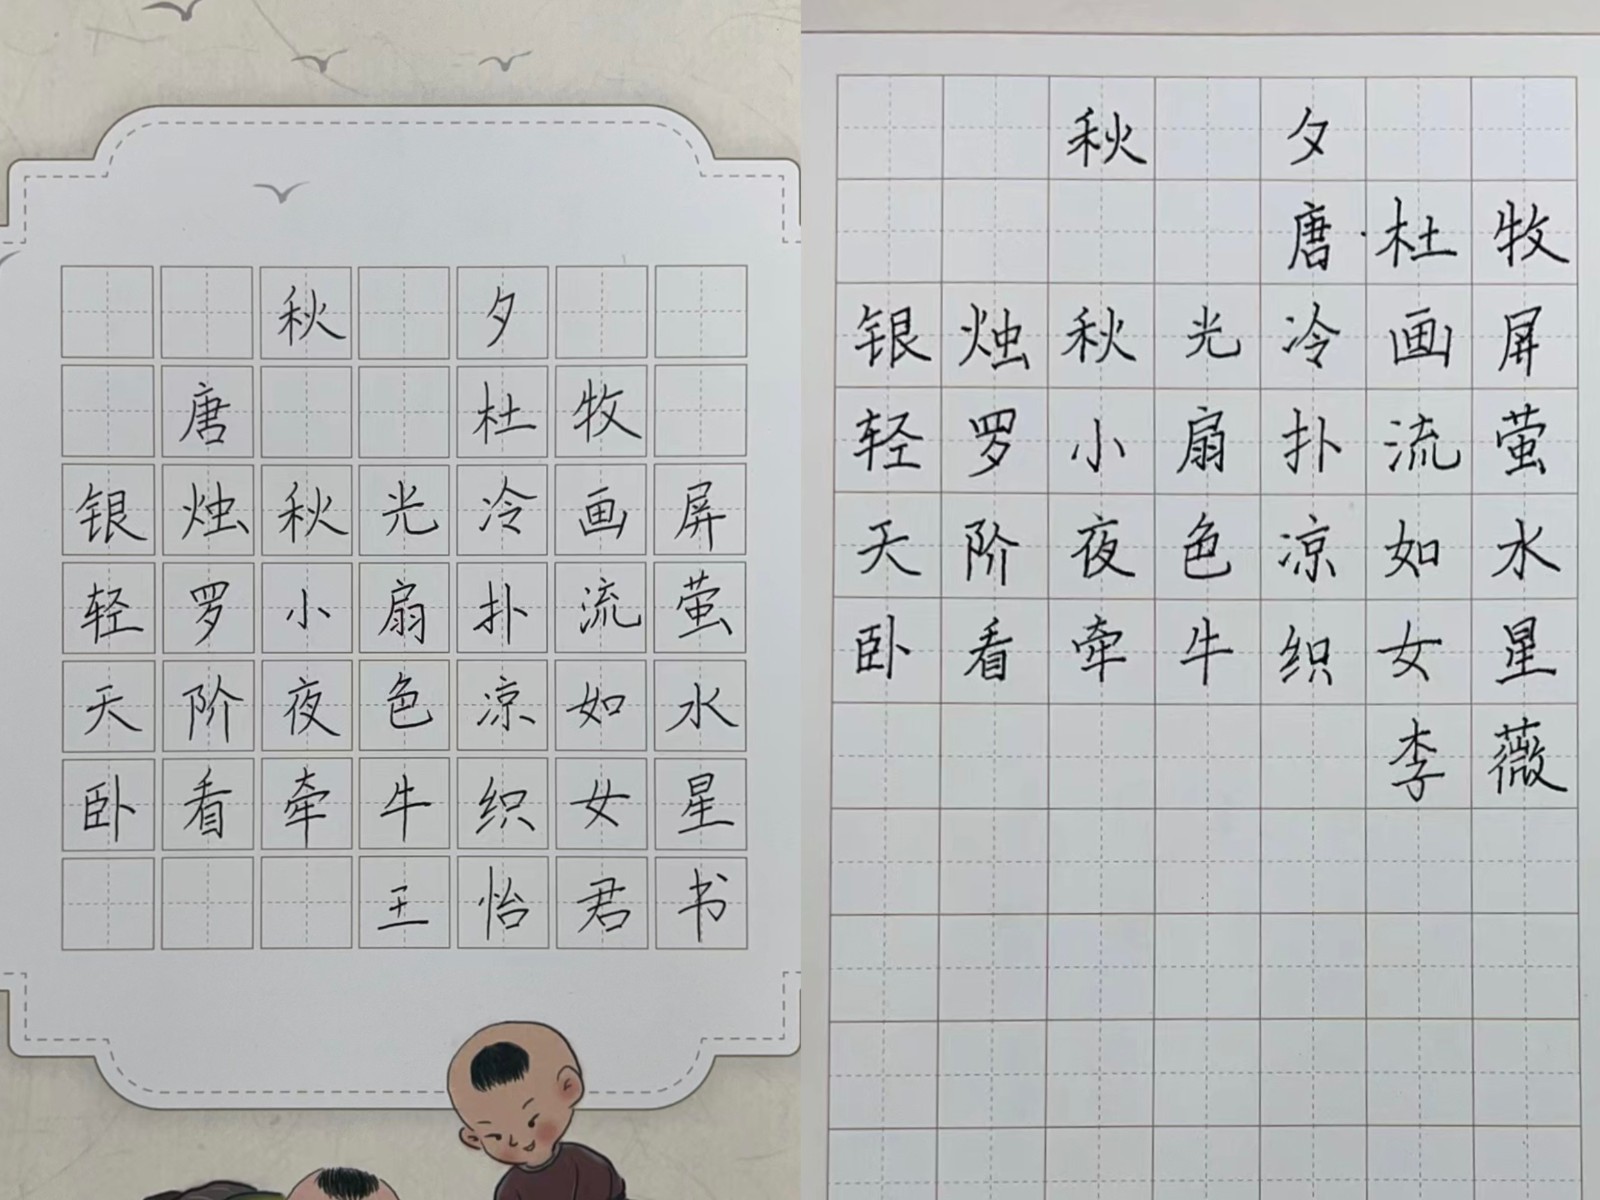 秋夕
唐 杜牧
银烛秋光冷画屏
轻罗小扇扑流萤
天阶夜色凉如水
卧看牵牛织女星
王怡君书
秋夕
唐·杜牧
银烛秋光冷画屏
轻罗小扇扑流萤
天阶夜色凉如水
卧看牵牛织女星
李薇